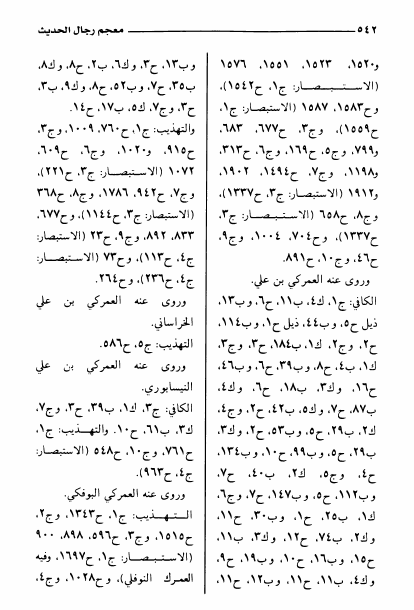 ٥٤٢ معجم رجال الحديث
و١٥٢٠، ١٥٢٣، ١٥٥١، ١٥٧٦
(الاستبصار: ج١، ح١٥٤٢)،
وح١٥٨٣، ١٥٨٧ (الاستبصار: ج١،
ح١٥٥٩)، وج٣، ح٦٧٧، ٦٨٣،
و٧٩٩، وج٥، ح١٦٩، وج٦، ح٣١٣،
و١١٩٨، وج٧، ح١٤٩٤، ١٩٠٢،
و١٩١٢ (الاستبصار: ج٣، ح١٣٣٧)،
وج٨، ح٦٥٨ (الاستبصار: ج٣،
ح١٣٣٧)، وح٧٠٤، ١٠٠٤، وج٩،
ح٤٦، وج١٠، ح٨٩١.
وروى عنه العمركي بن علي.
الكافي: ج١، ك٤، ب١١، ح٦، وب١٣،
ذيل ح٥، وب٤٤، ذيل ح١، وب١١٤،
ح٢، وج٢، ك١، ب١٨٤، ح٣، وج٣،
ك١، ب٤، ح٨، وب٣٩، ح٦، وب٤٦،
ح١٦، وك٣، ب١٨، ح٦، وك٤،
ب٨٧، ح٧، وك٥، ب٤٢، ح٢، وج٤،
ك٢، ب٢٩، ح٥، وب٥٣، ح٢، وك٣،
ب٢٩، ح٥، وب٩٩، ح١٠، وب١٣٤،
ح٤، وج٥، ك٢، ب٤٠، ح٧،
وب١١٢، ح٥، وب١٤٧، ح٧، وج٦،
ك١، ب٢٥، ح١، وب٣٠، ح١١،
وك٢، ب٧٤، ح١٢، وك٣، ب١١،
ح١٥، وب١٦، ح١٠، وب١٩، ح٩،
وك٤، ب١١، ح١١، وب١٢، ح١١،
وب١٣، ح٣، وك٦، ب٢، ح٨، وك٨،
ب٣٥، ح٧، وب٥٢، ح٨، وك٩، ب٣،
ح٣، وج٧، ك٥، ب١٧، ح١٤.
والتهذيب: ج١، ح٧٦٠، ١٠٠٩، وج٣،
ح٩١٥، و١٠٢٠، وج٦، ح٦٠٩،
١٠٧٢ (الاستبصار: ج٣، ح٢٢١)،
وج٧، ح٩٤٢، ١٧٨٦، وج٨، ح٣٦٨
(الاستبصار: ج٣، ح١١٤٤)، وح٦٧٧،
٨٣٣، ٨٩٢، وج٩، ح٢٣ (الاستبصار:
ج٤، ح١١٣)، وح٧٣ (الاستبصار:
ج٤، ح٢٣٦)، وح٢٦٤.
وروى عنه العمركي بن علي
الخراساني.
التهذيب: ج٥، ح٥٨٦.
وروى عنه العمركي بن علي
النيسابوري.
الكافي: ج٣، ك١، ب٣٩، ح٣، وج٧،
ك٣، ب٦١، ح١٠. والتهذيب: ج١،
ح٧٦١، وج١٠، ح٥٤٨ (الاستبصار:
ج٤، ح٩٦٣).
وروى عنه العمركي البوفكي.
التهذيب: ج١، ح١٣٤٣، وج٢،
ح١٥١٥، وج٣، ح٥٩٦، ٨٩٨، ٩٠٠
(الاستبصار: ج١، ح١٦٩٧، وفيه
العمرك النوفلي)، وح١٠٢٨، وج٤،